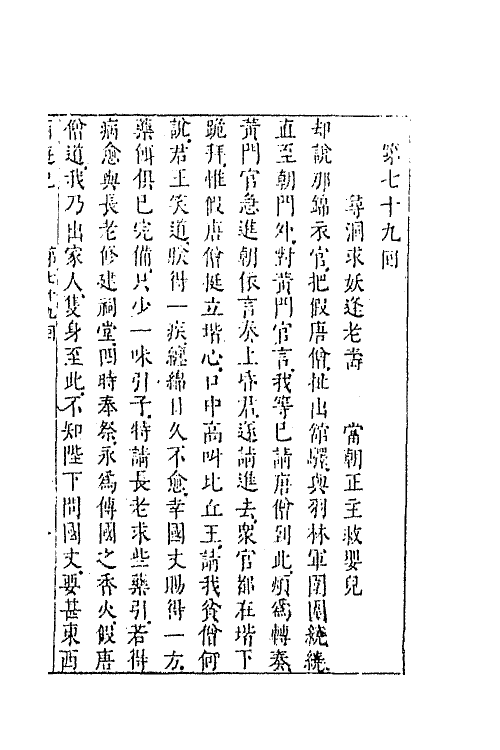 第七十九回
尋洞求妖逢老壽　當朝正主救嬰兒
却說那錦衣官、把假唐僧、扯出舘驛、與羽林軍圍圍繞繞、
直至朝門外、對黃門官言、我等已請唐僧到此、煩爲轉奏、
黃門官急進朝、依言奏上昏君、遂請進去、衆官都在堦下
跪拜、惟假唐僧挺立堦心、口中高叫比丘王、請我貧僧何
說、君王笑道、朕得一疾、纏綿日久不愈、幸國丈賜得一方、
藥餌俱已完備、只少一味引子、特請長老求些藥引、若得
病愈、與長老修建祠堂、四時奉祭、永爲傳國之香火、假唐
僧道、我乃出家人、隻身至此、不知陛下問國丈、要甚東西
第七十九回